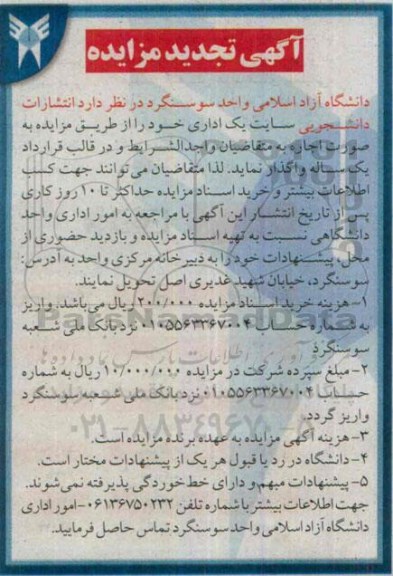 آگهی تجدید مزایده
دانشگاه آزاد اسلامی واحد سوسنگرد در نظر دارد انتشارات
دانشجویی سایت یک اداری خود را از طریق مزایده به
صورت اجاره به متقاضیان واجدالشرایط و در قالب قرارداد
یک ساله واگذار نماید. لذا متقاضیان می توانند جهت کسب
اطلاعات بیشتر و خرید اسناد مزایده حداکثر تا ۱۰ روز کاری
پس از تاریخ انتشار این آگهی با مراجعه به امور اداری واحد
دانشگاهی نسبت به تهیه اسناد مزایده و بازدید حضوری از
محل، پیشنهادات خود را به دبیرخانه مرکزی واحد به آدرس:
سوسنگرد، خیابان شهید غدیری اصل تحویل نمایند.
۱- هزینه خرید اسناد مزایده ۲۰۰/۰۰۰ ریال می باشد. واریز
به شماره حساب ۰۱۰۵۵۶۳۳۶۷۰۰۴ نزد بانک ملی شعبه
سوسنگرد
۲- مبلغ سپرده شرکت در مزایده ۱۰/۰۰۰/۰۰۰ ریال به شماره
حساب ۰۱۰۵۵۶۳۳۶۷۰۰۴ نزد بانک ملی شعبه سوسنگرد
واریز گردد.
۳- هزینه آگهی مزایده به عهده برنده مزایده است.
۴- دانشگاه در رد یا قبول هر یک از پیشنهادات مختار است.
۵- پیشنهادات مبهم و دارای خط خوردگی پذیرفته نمی شوند.
جهت اطلاعات بیشتر با شماره تلفن ۰۶۱۳۶۷۵۰۲۳۲-امور اداری
دانشگاه آزاد اسلامی واحد سوسنگرد تماس حاصل فرمایید.
ParsNamadData
۰۲۱-۸۸۳۴۹۶۷۰-۵